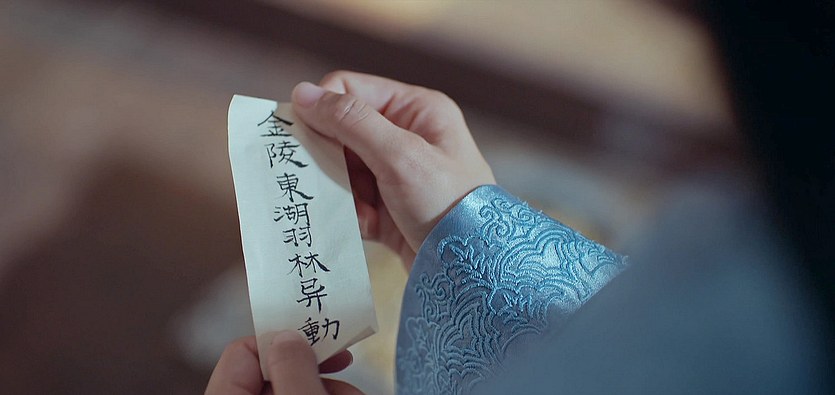 金陵東湖羽林异動